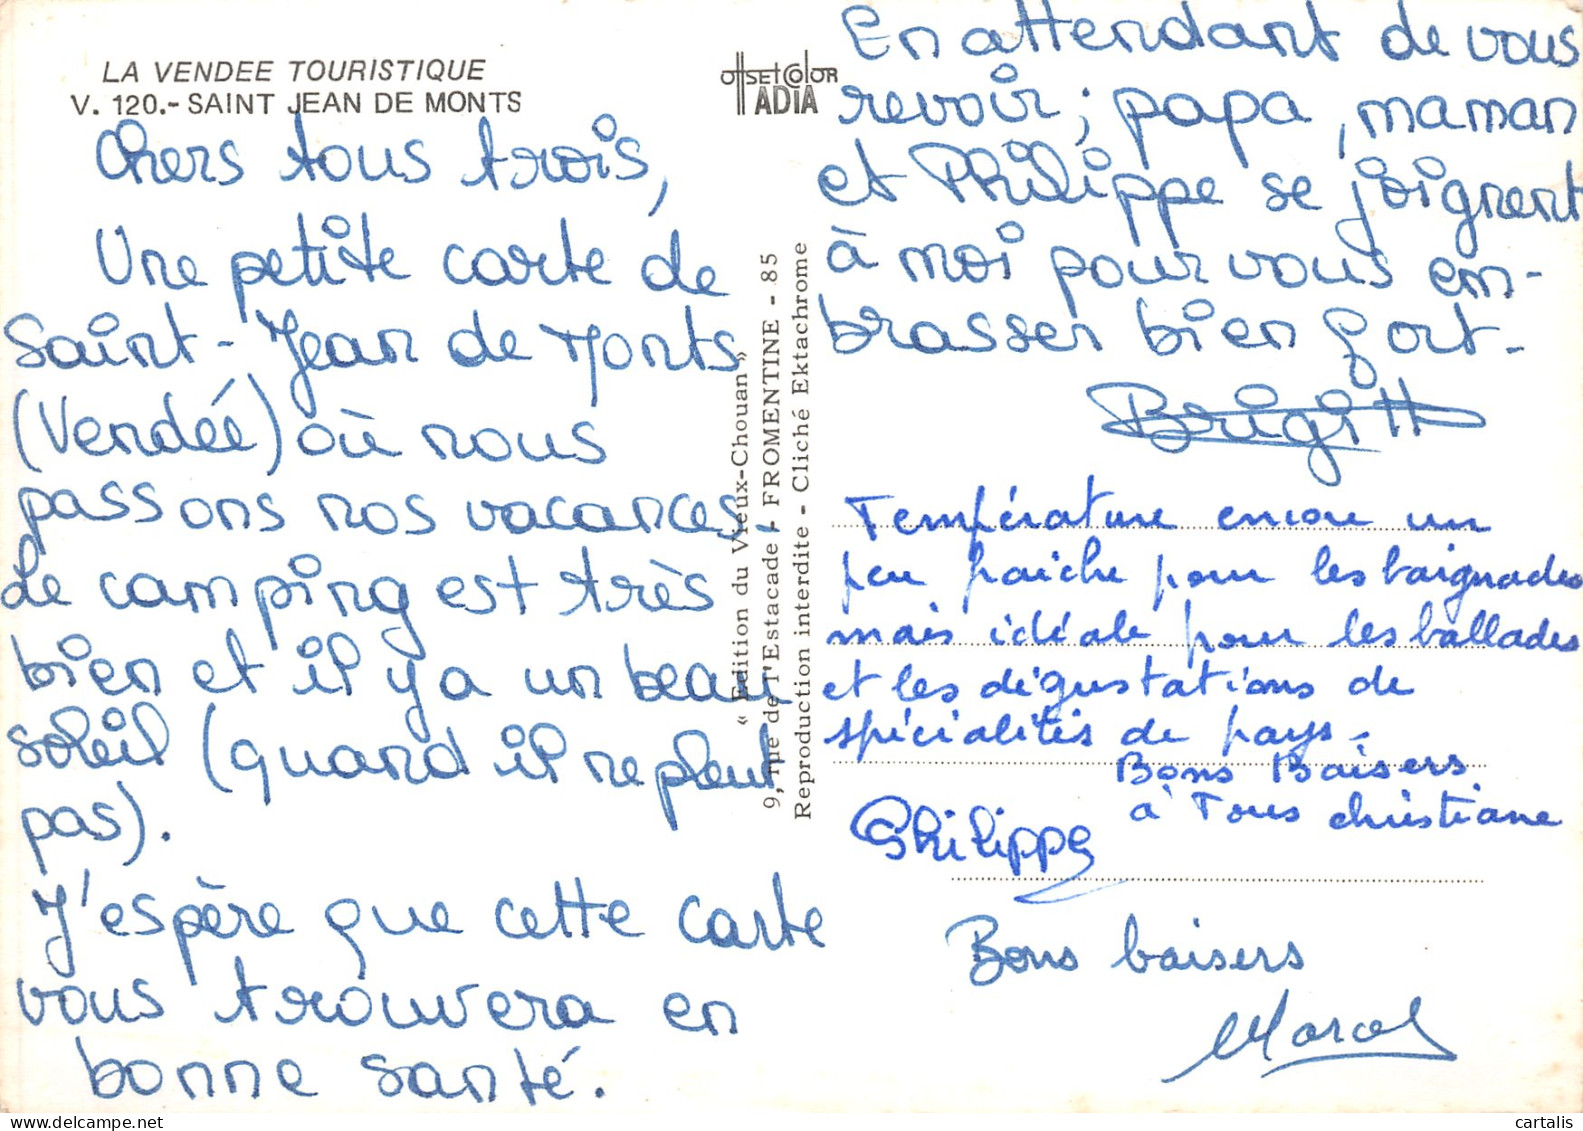 LA VENDEE TOURISTIQUE
V. 120.- SAINT JEAN DE MONTS
Chers tous trois,
Une petite carte de
Saint-Jean de Monts
(Vendée) où nous
passons nos vacances.
Le camping est très
bien et il y a un beau
soleil (quand il ne pleut
pas).
J'espère que cette carte
vous trouvera en
bonne santé.
OFFSET COLOR
ADIA
« Edition du Vieux-Chouan »
9, rue de l'Estacade - FROMENTINE - 85
Reproduction interdite - Cliché Ektachrome
En attendant de vous
revoir ; papa, maman
et Philippe se joignent
à moi pour vous em-
brasser bien fort.
Brigitt
Température encore un
peu fraîche pour les baignades
mais idéale pour les ballades
et les dégustations de
spécialités de pays.
Bons Baisers
à Tous Christiane
Philippe
Bons baisers
Marcel
cartalis